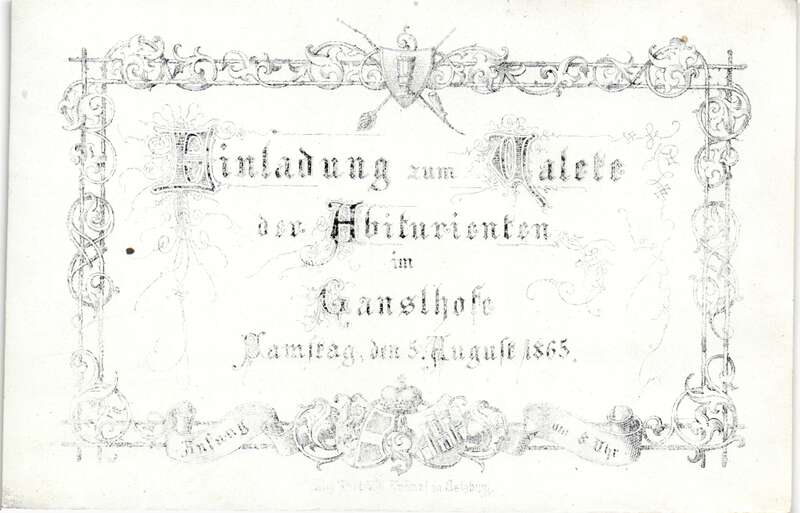 Einladung zum Valete
der Abiturienten
im
Ganslhofe
Samstag, den 5. August 1865.
Anfang um 8 Uhr
in Salzburg.